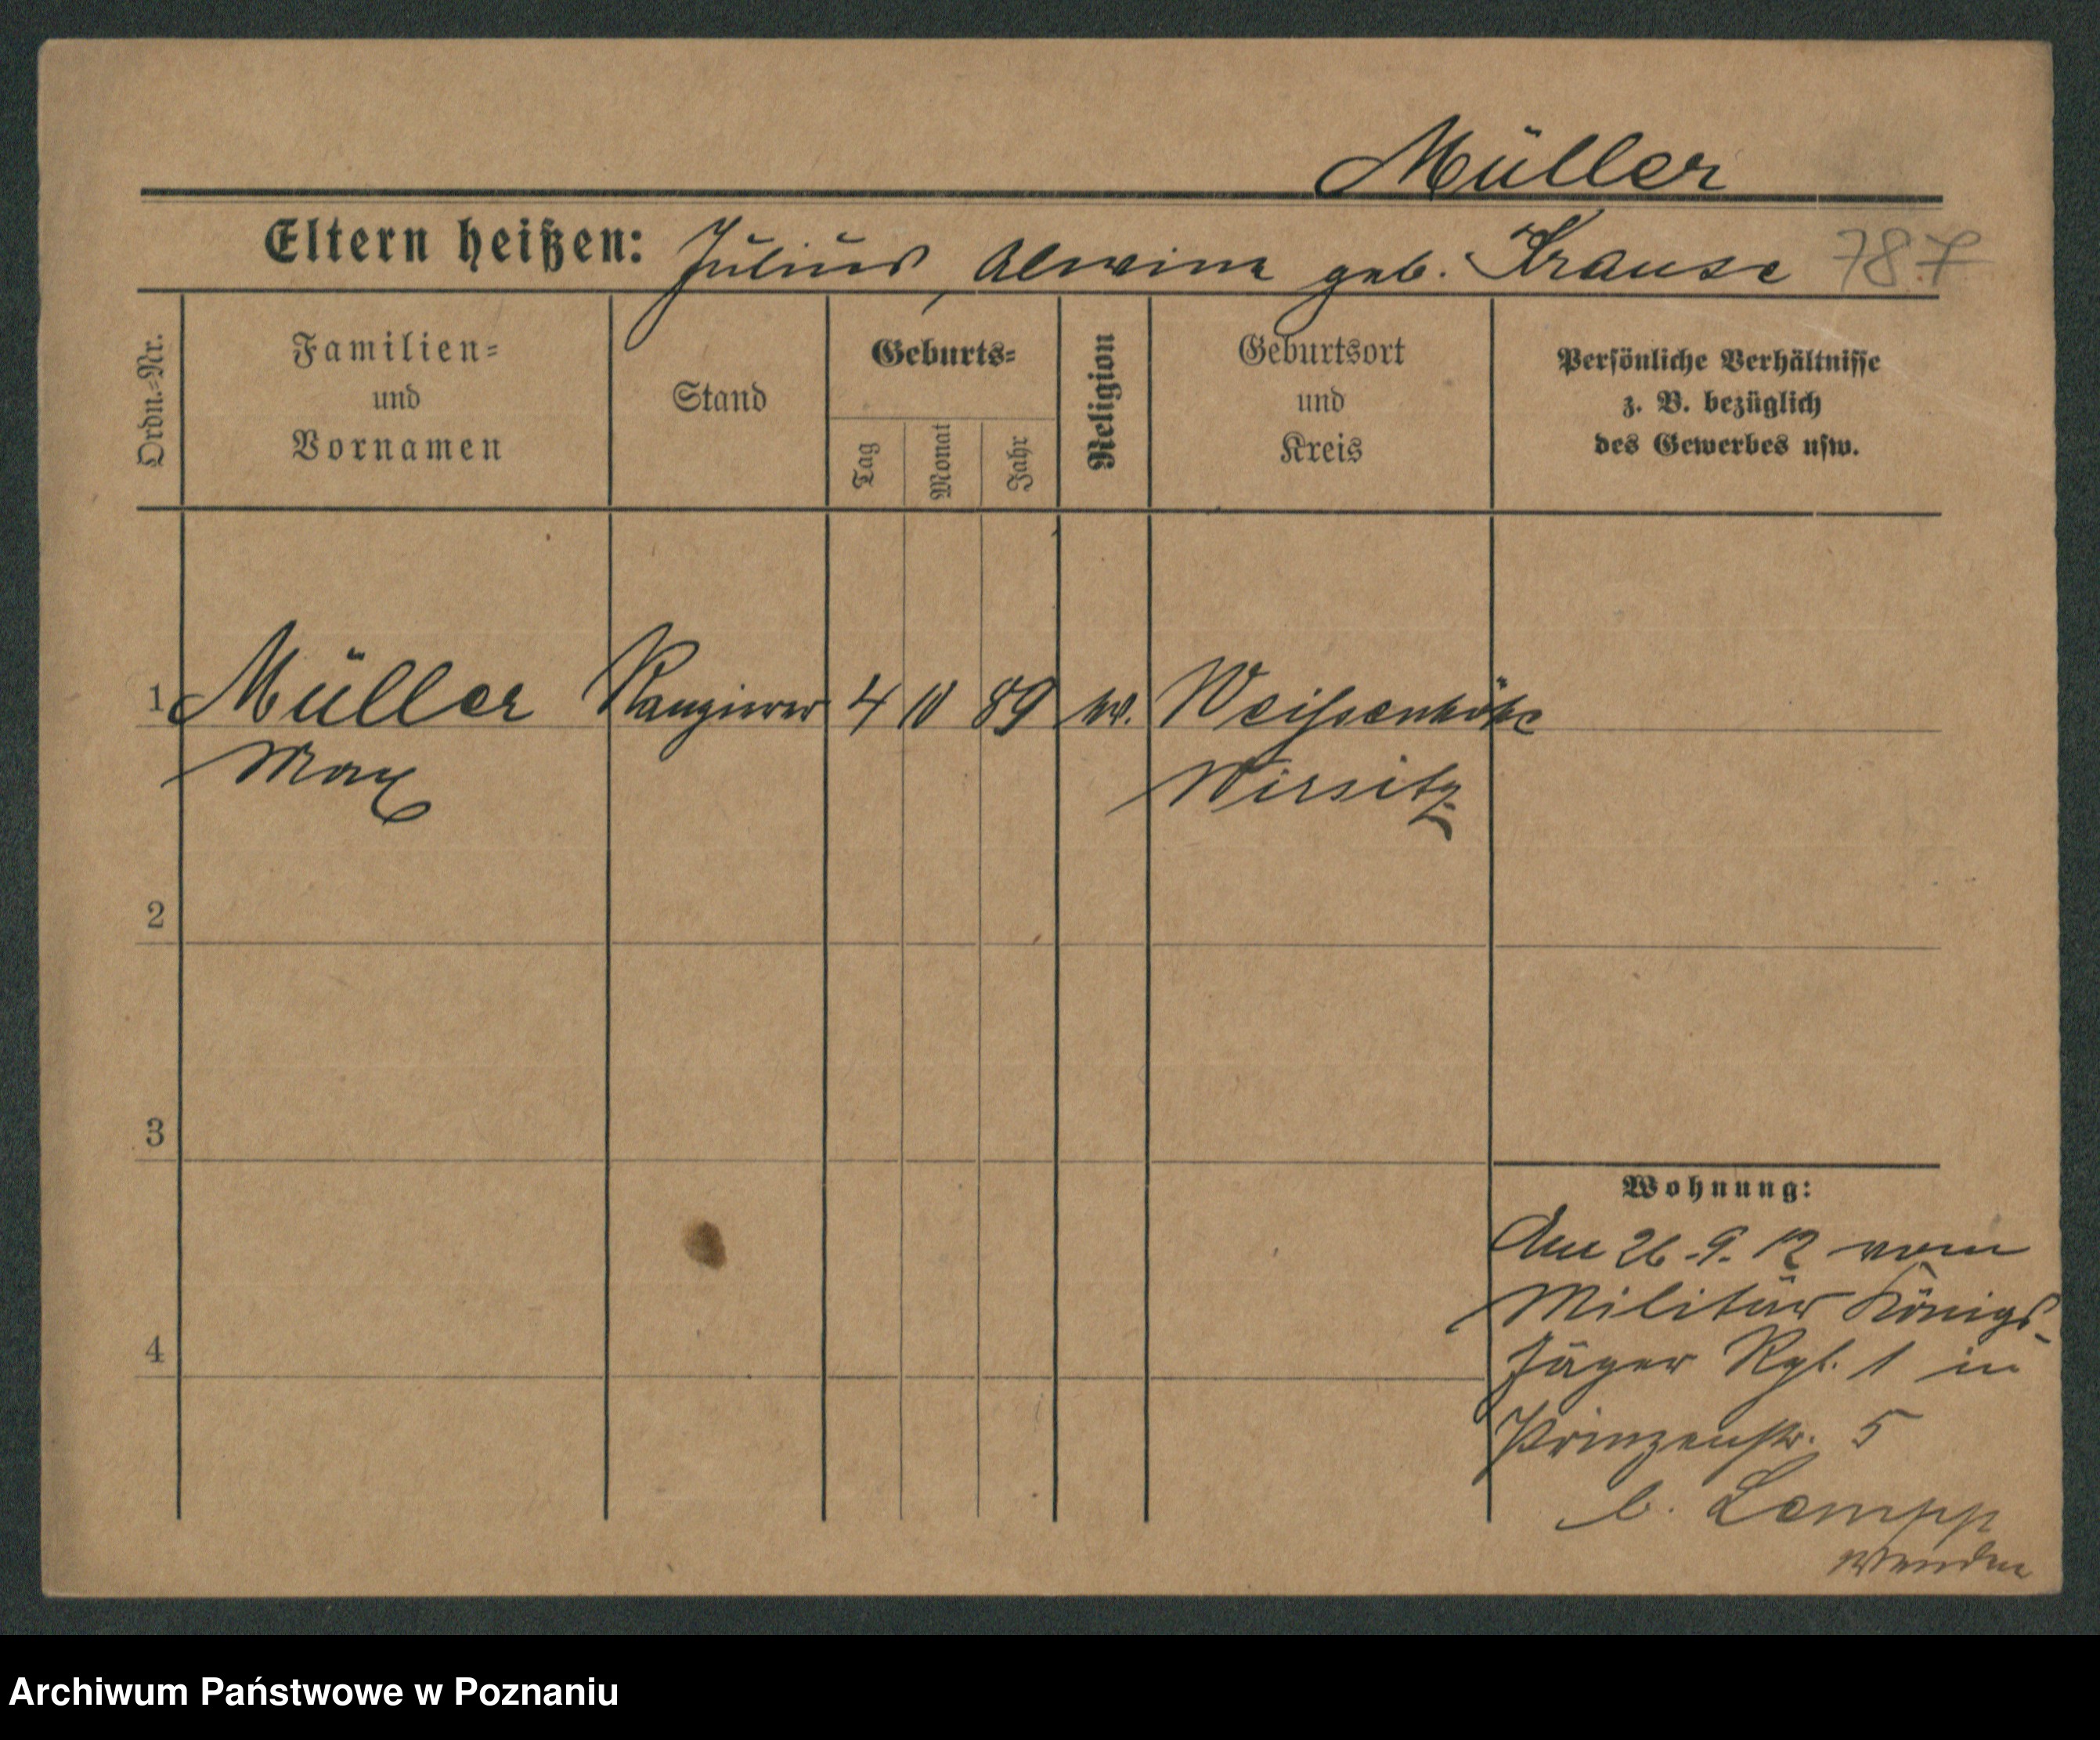 Müller
Eltern heißen: Julius, Alwine geb. Krause 787
Ordn.=Nr.
Familien=
und
Vornamen
Stand
Geburts=
Tag
Monat
Jahr
Religion
Geburtsort
und
Kreis
Persönliche Verhältnisse
z. B. bezüglich
des Gewerbes usw.
1 Müller Rangierer 4 10 89 ev. Weißenhöhe
Max Wirsitz
2
3
4
Wohnung:
Am 26.9.12 vom
Militär Königs-
Jäger Rgt. 1 in
Prinzenstr. 5
b. Lempp
wenden
Archiwum Państwowe w Poznaniu